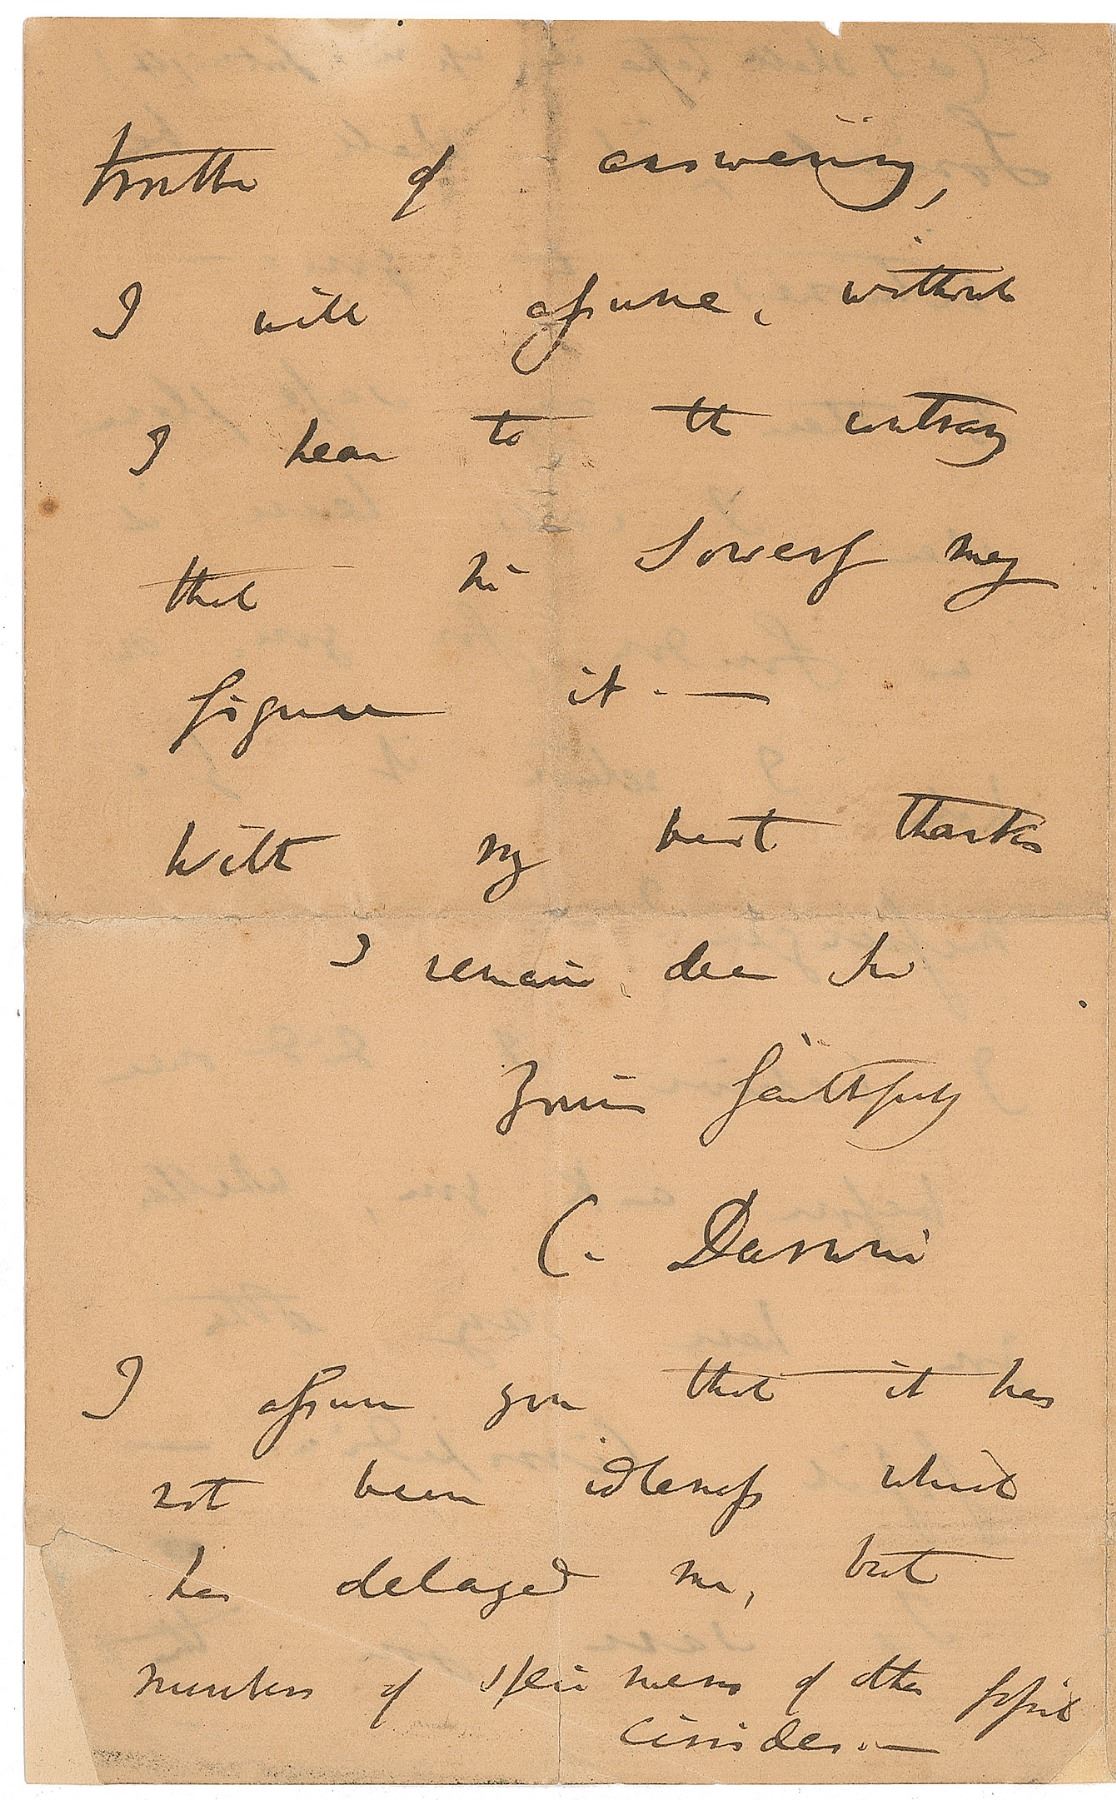 trouble of answering,
I will assume, without
I hear to the contrary
that Mr Sowerby may
figure it.—
With my best thanks
I remain, dear Sir
Yours faithfully
C. Darwin
I assure you that it has
not been idleness which
has delayed me, but
numbers of specimens of other fossil
cirripedes.—